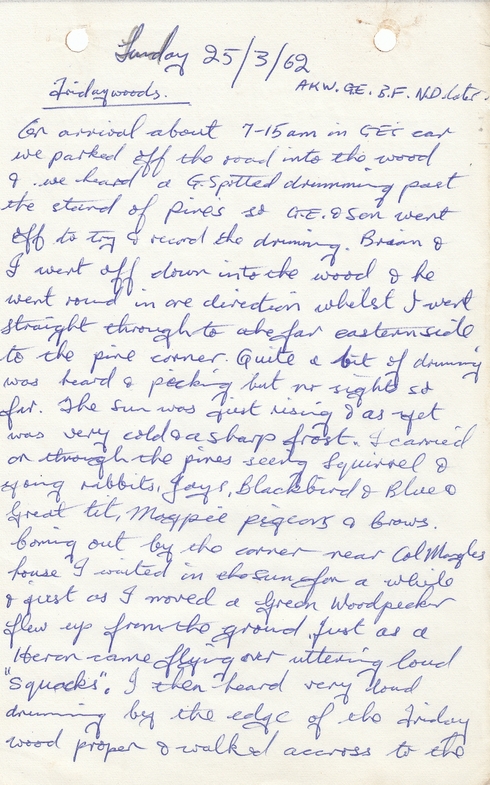 Sunday 25/3/62
Fridaywoods.
AKW. G.E. B.F. N.D. later.
On arrival about 7-15am in GE's car
we parked off the road into the wood
& we heard a G. Spotted drumming past
the stand of pines so G.E. & Son went
off to try & record the druming. Brian &
I went off down into the wood & he
went round in one direction whilst I went
straight through to the far eastern side
to the pine corner. Quite a bit of druming
was heard & pecking but no sight so
far. The sun was just rising & as yet
was very cold & a sharp frost. I carried
on through the pines seeing Squirrel &
young rabbits, Jays, Blackbird & Blue &
Great tit, Magpie pigeons & Crows.
Coming out by the corner near Col
house I waited in the sun for a while
& just as I moved a Green Woodpecker
flew up from the ground. Just as a
Heron came flying over uttering loud
"Squacks". I then heard very loud
drumming by the edge of the Friday
wood proper & walked accross to the